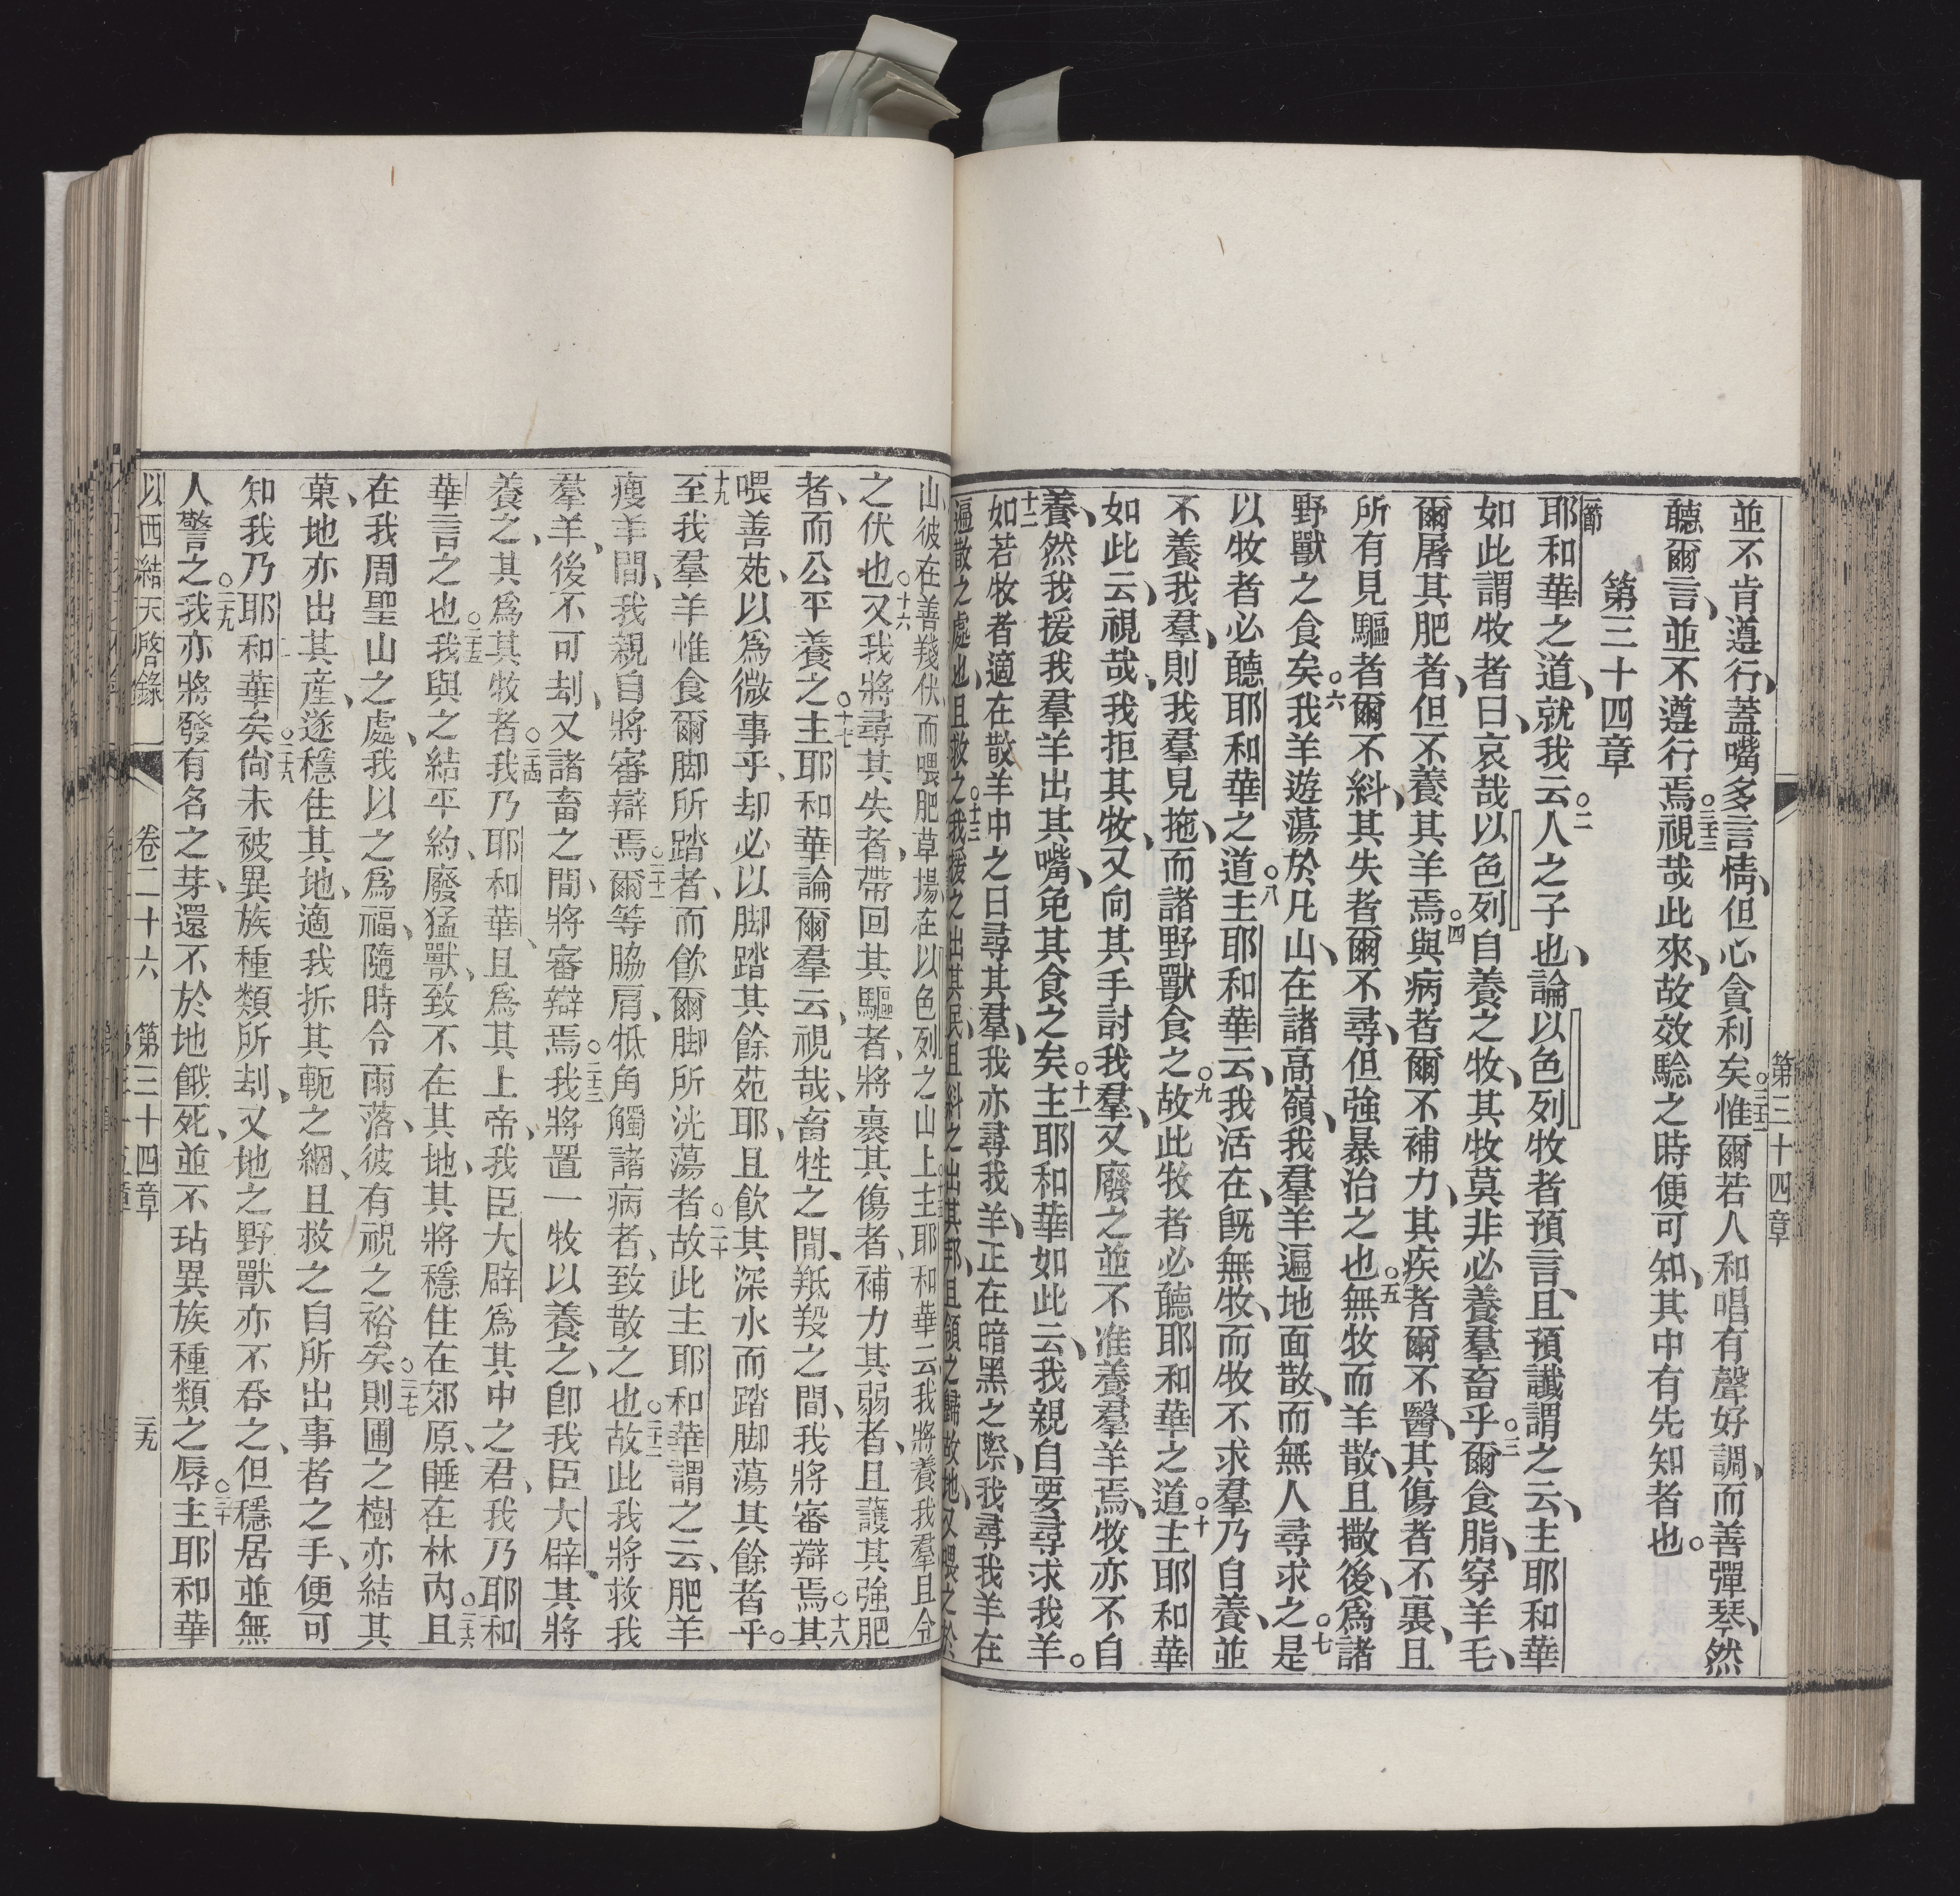 第三十四章
並不肯遵行、蓋嘴多言情、但心貪利矣○三十二惟爾若人和唱有聲好調、而善彈琴、然
聽爾言、並不遵行焉○三十三視哉此來、故效驗之時便可知、其中有先知者也。
第三十四章
一節耶和華之道、就我云○二人之子也、論以色列牧者預言、且預讖謂之云、主耶和華
如此謂牧者曰、哀哉以色列自養之牧、其牧莫非必養羣畜乎○三爾食脂、穿羊毛、
爾屠其肥者、但不養其羊焉○四與病者爾不補力、其疾者爾不醫、其傷者不裹、且
所有見驅者爾不糾、其失者爾不尋、但強暴治之也○五無牧而羊散、且撒後、爲諸
野獸之食矣○六我羊遊蕩於凡山、在諸高嶺、我羣羊遍地面散、而無人尋求之○七是
以牧者必聽耶和華之道○八主耶和華云、我活在、旣無牧、而牧不求羣乃自養、並
不養我羣、則我羣見拖、而諸野獸食之○九故此牧者必聽耶和華之道○十主耶和華
如此云、視哉、我拒其牧、又向其手討我羣、又廢之並不准養羣羊焉、牧亦不自
養、然我援我羣羊出其嘴、免其食之矣○十一主耶和華如此云、我親自要尋求我羊。
十二如若牧者適在散羊中之日尋其羣、我亦尋我羊、正在暗黑之際、我尋我羊在
遍散之處也、且救之○十三我援之出其民、且糾之出其邦、且領之歸故地、又喂之於
山、彼在善羧伏、而喂肥草場、在以色列之山上○十五主耶和華云我將養我羣且令
之伏也○十六又我將尋其失者、帶回其驅者、將裹其傷者、補力其弱者、且護其強肥
者、而公平養之○十七主耶和華論爾羣云、視哉、畜牲之間、羝羖之間、我將審辯焉○十八其
喂善苑、以爲微事乎、却必以脚踏其餘苑耶、且飮其深水而踏脚蕩其餘者乎。
十九至我羣羊惟食爾脚所踏者、而飮爾脚所洸蕩者○二十故此主耶和華謂之云、肥羊
瘦羊間、我親自將審辯焉○二十一爾等脇肩、牴角觸諸病者、致散之也○二十二故此我將救我
羣羊、後不可刦、又諸畜之間、將審辯焉○二十三我將置一牧以養之、卽我臣大辟、其將
養之、其爲其牧者○二十四我乃耶和華、且爲其上帝、我臣大辟爲其中之君、我乃耶和
華言之也○二十五我與之結平約、廢猛獸、致不在其地、其將穩住在郊原、睡在林內○二十六且
在我周聖山之處、我以之爲福、隨時令雨落、彼有祝之裕矣○二十七則圃之樹亦結其
菓、地亦出其產、遂穩住其地、適我拆其軛之綑、且救之自所出事者之手、便可
知我乃耶和華矣○二十八尙未被異族種類所刦、又地之野獸亦不吞之、但穩居並無
人警之○二十九我亦將發有名之芽、還不於地餓死、並不玷異族種類之辱○三十主耶和華
以西結天啓錄 卷二十六 第三十四章 三九